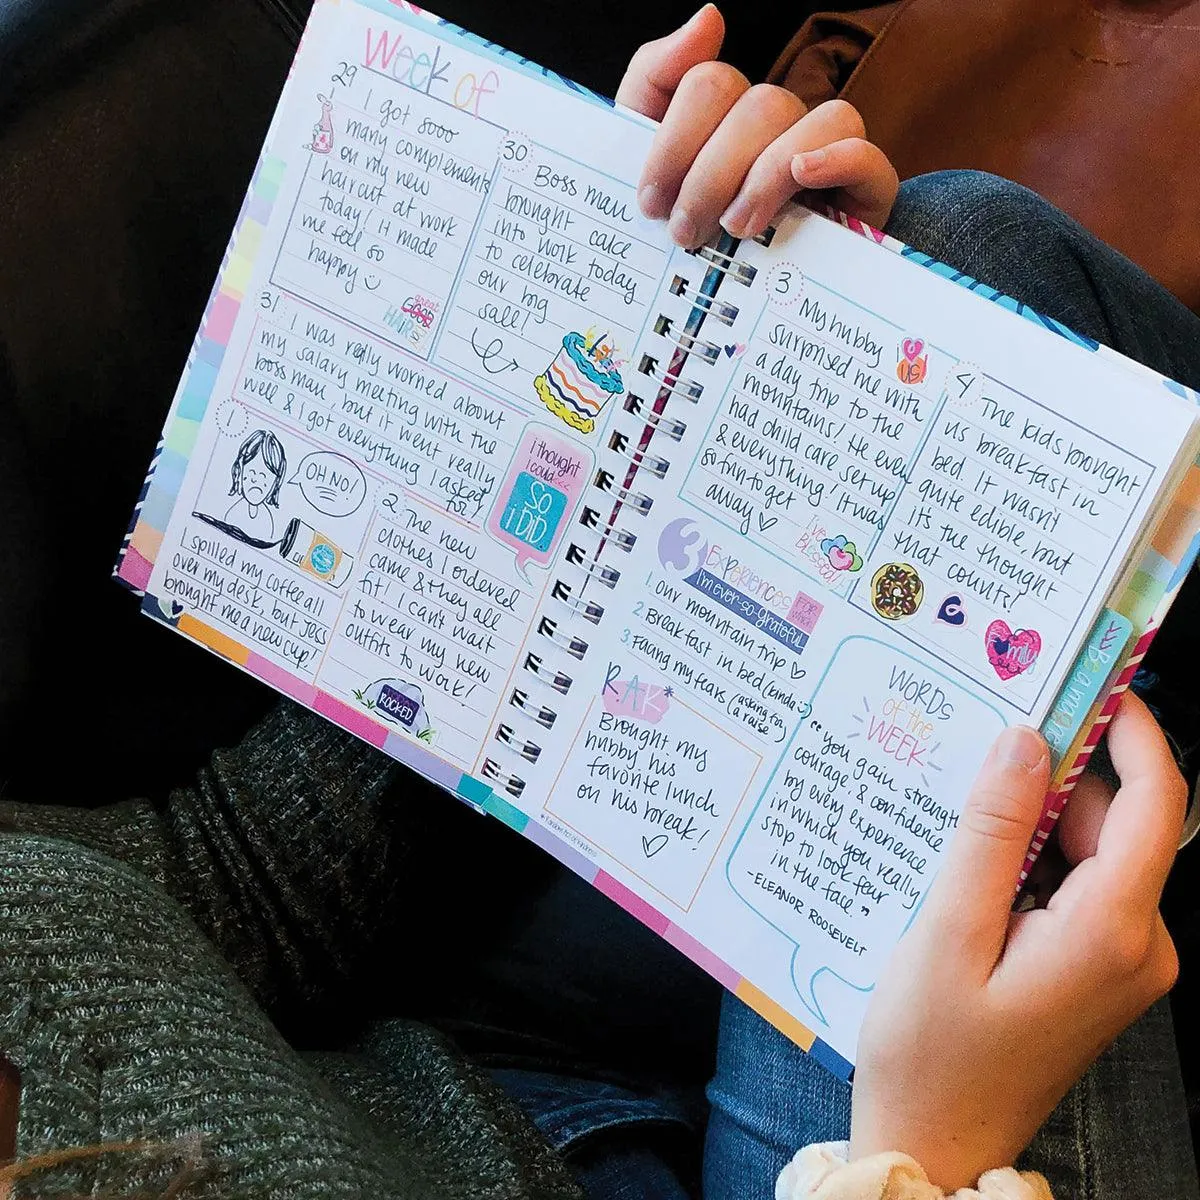 Week of
29
I got sooo
many complements
on my new
haircut at work
today! It made
me feel so
happy
great
GOOD
HAIR
30
Boss man
brought cake
into work today
to celebrate
our big
sale!
31
I was really worried about
my salary meeting with the
boss man, but it went really
well & I got everything I asked
for!
I thought
I could...
SO
I DID.
1
OH NO!
I spilled my coffee all
over my desk, but Jess
brought me a new cup!
2
The new
clothes I ordered
came & they all
fit! I can't wait
to wear my new
outfits to work!
ROCKED
3
My hubby
surprised me with
a day trip to the
mountains! He even
had child care set up
& everything! It was
so fun to get
away ♡
US!
I'VE
BLESSED!
4
The kids brought
us breakfast in
bed. It wasn't
quite edible, but
it's the thought
that counts!
Family
3 Experiences
FOR which
I'm ever-so-grateful...
1. our mountain trip ♡
2. Breakfast in bed (kinda)
3. Facing my fears (asking for
a raise)
R.A.K*
Brought my
hubby his
favorite lunch
on his break!
♡
*random act of kindness
WORDS
of the
WEEK
"You gain strength
courage, & confidence
by every experience
in which you really
stop to look fear
in the face."
-ELEANOR ROOSEVELT